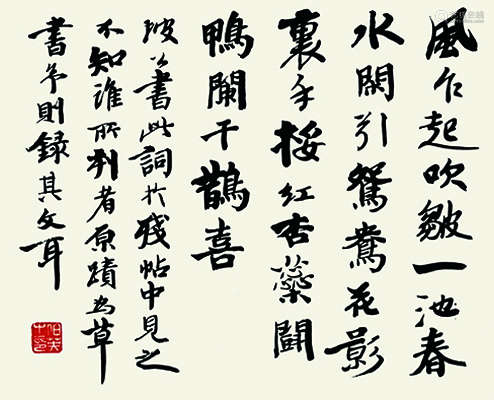 風乍起吹皺一池春
水閑引鴛鴦花影
裏手挼紅杏蘂鬪
鴨闌干鵲喜
坡公書此詞於殘帖中見之
不知誰所刻者原蹟為草
書予則録其文耳